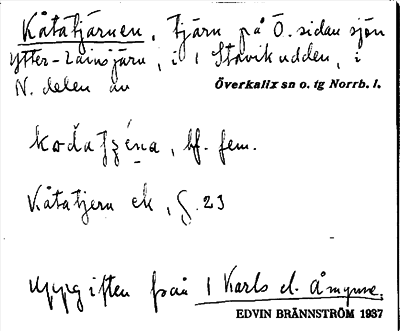 Kåtatjärnen, tjärn på Ö. sidan sjön
Ytter-Lainsjärv, i 1 Storikudden, i
N. delen av Överkalix sn o. tg Norrb. l.
bf. fem.
Kåtatjern ek, §. 23
Uppgiften från 1 Karls d.
EDVIN BRÄNNSTRÖM 1937